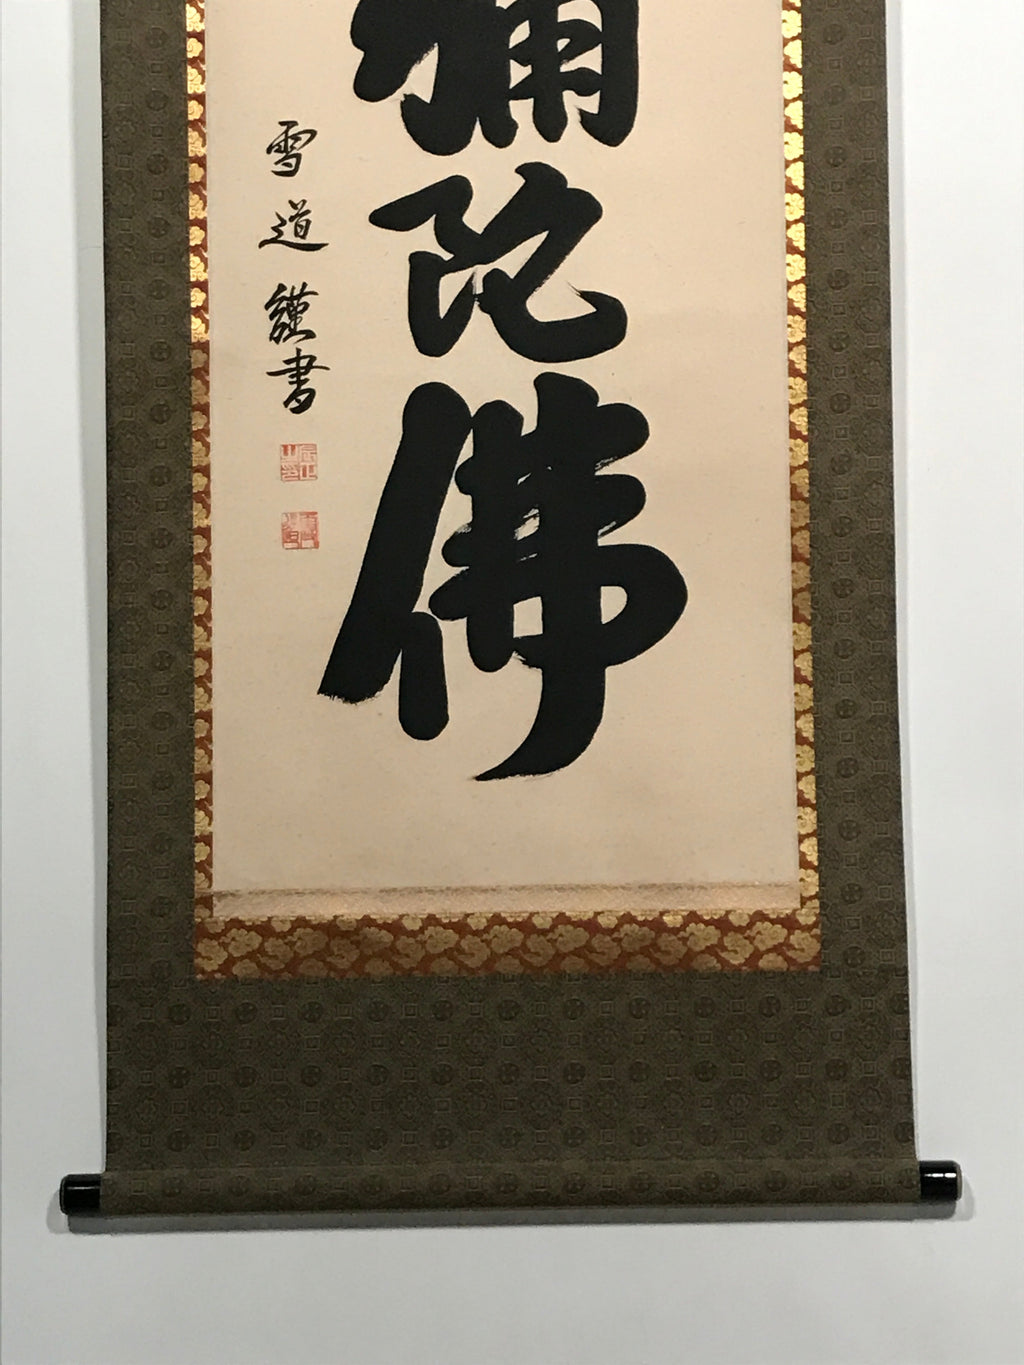 彌陀佛
雪道謹書